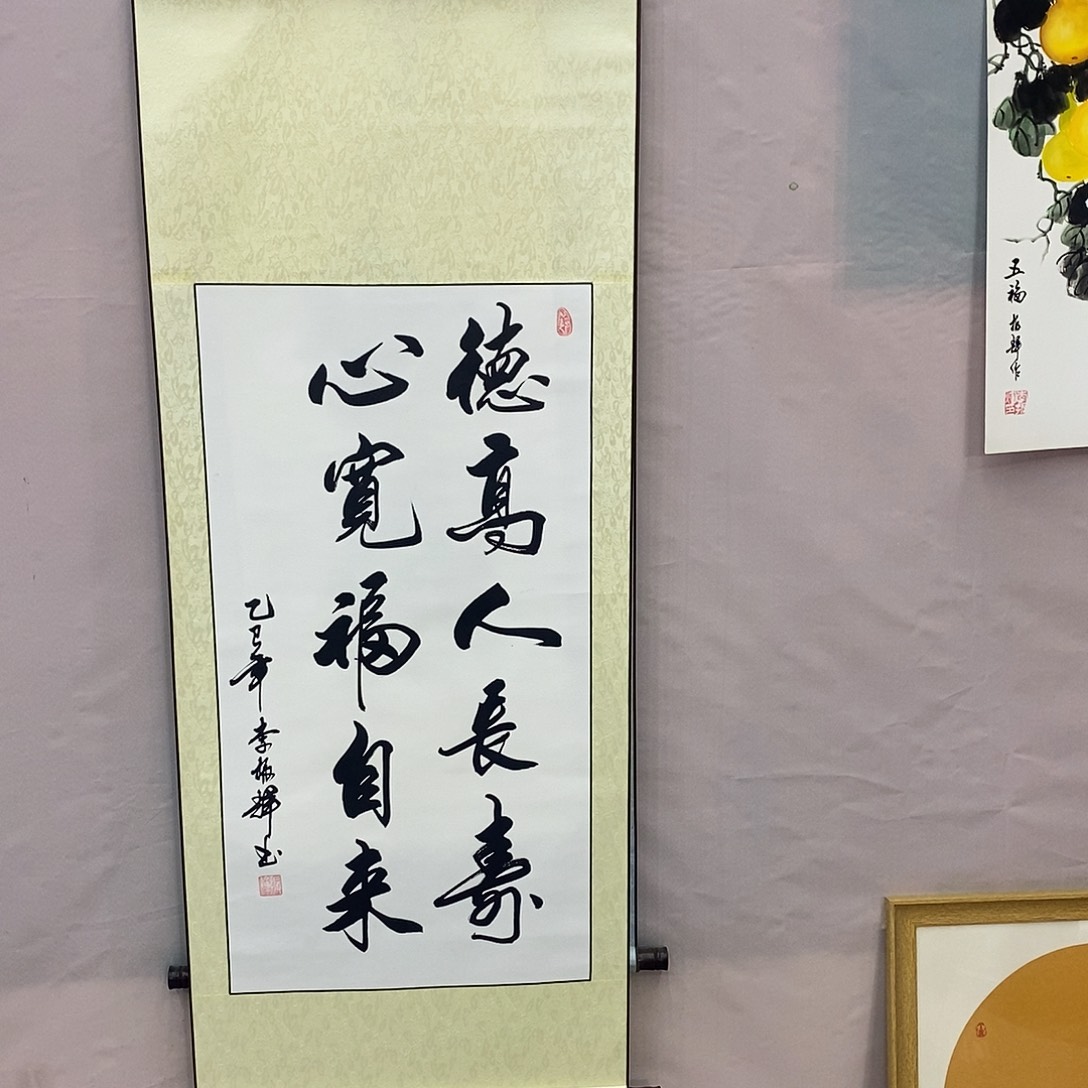 德高人長壽
心寬福自来
乙巳年李振輝书
五福 振輝作